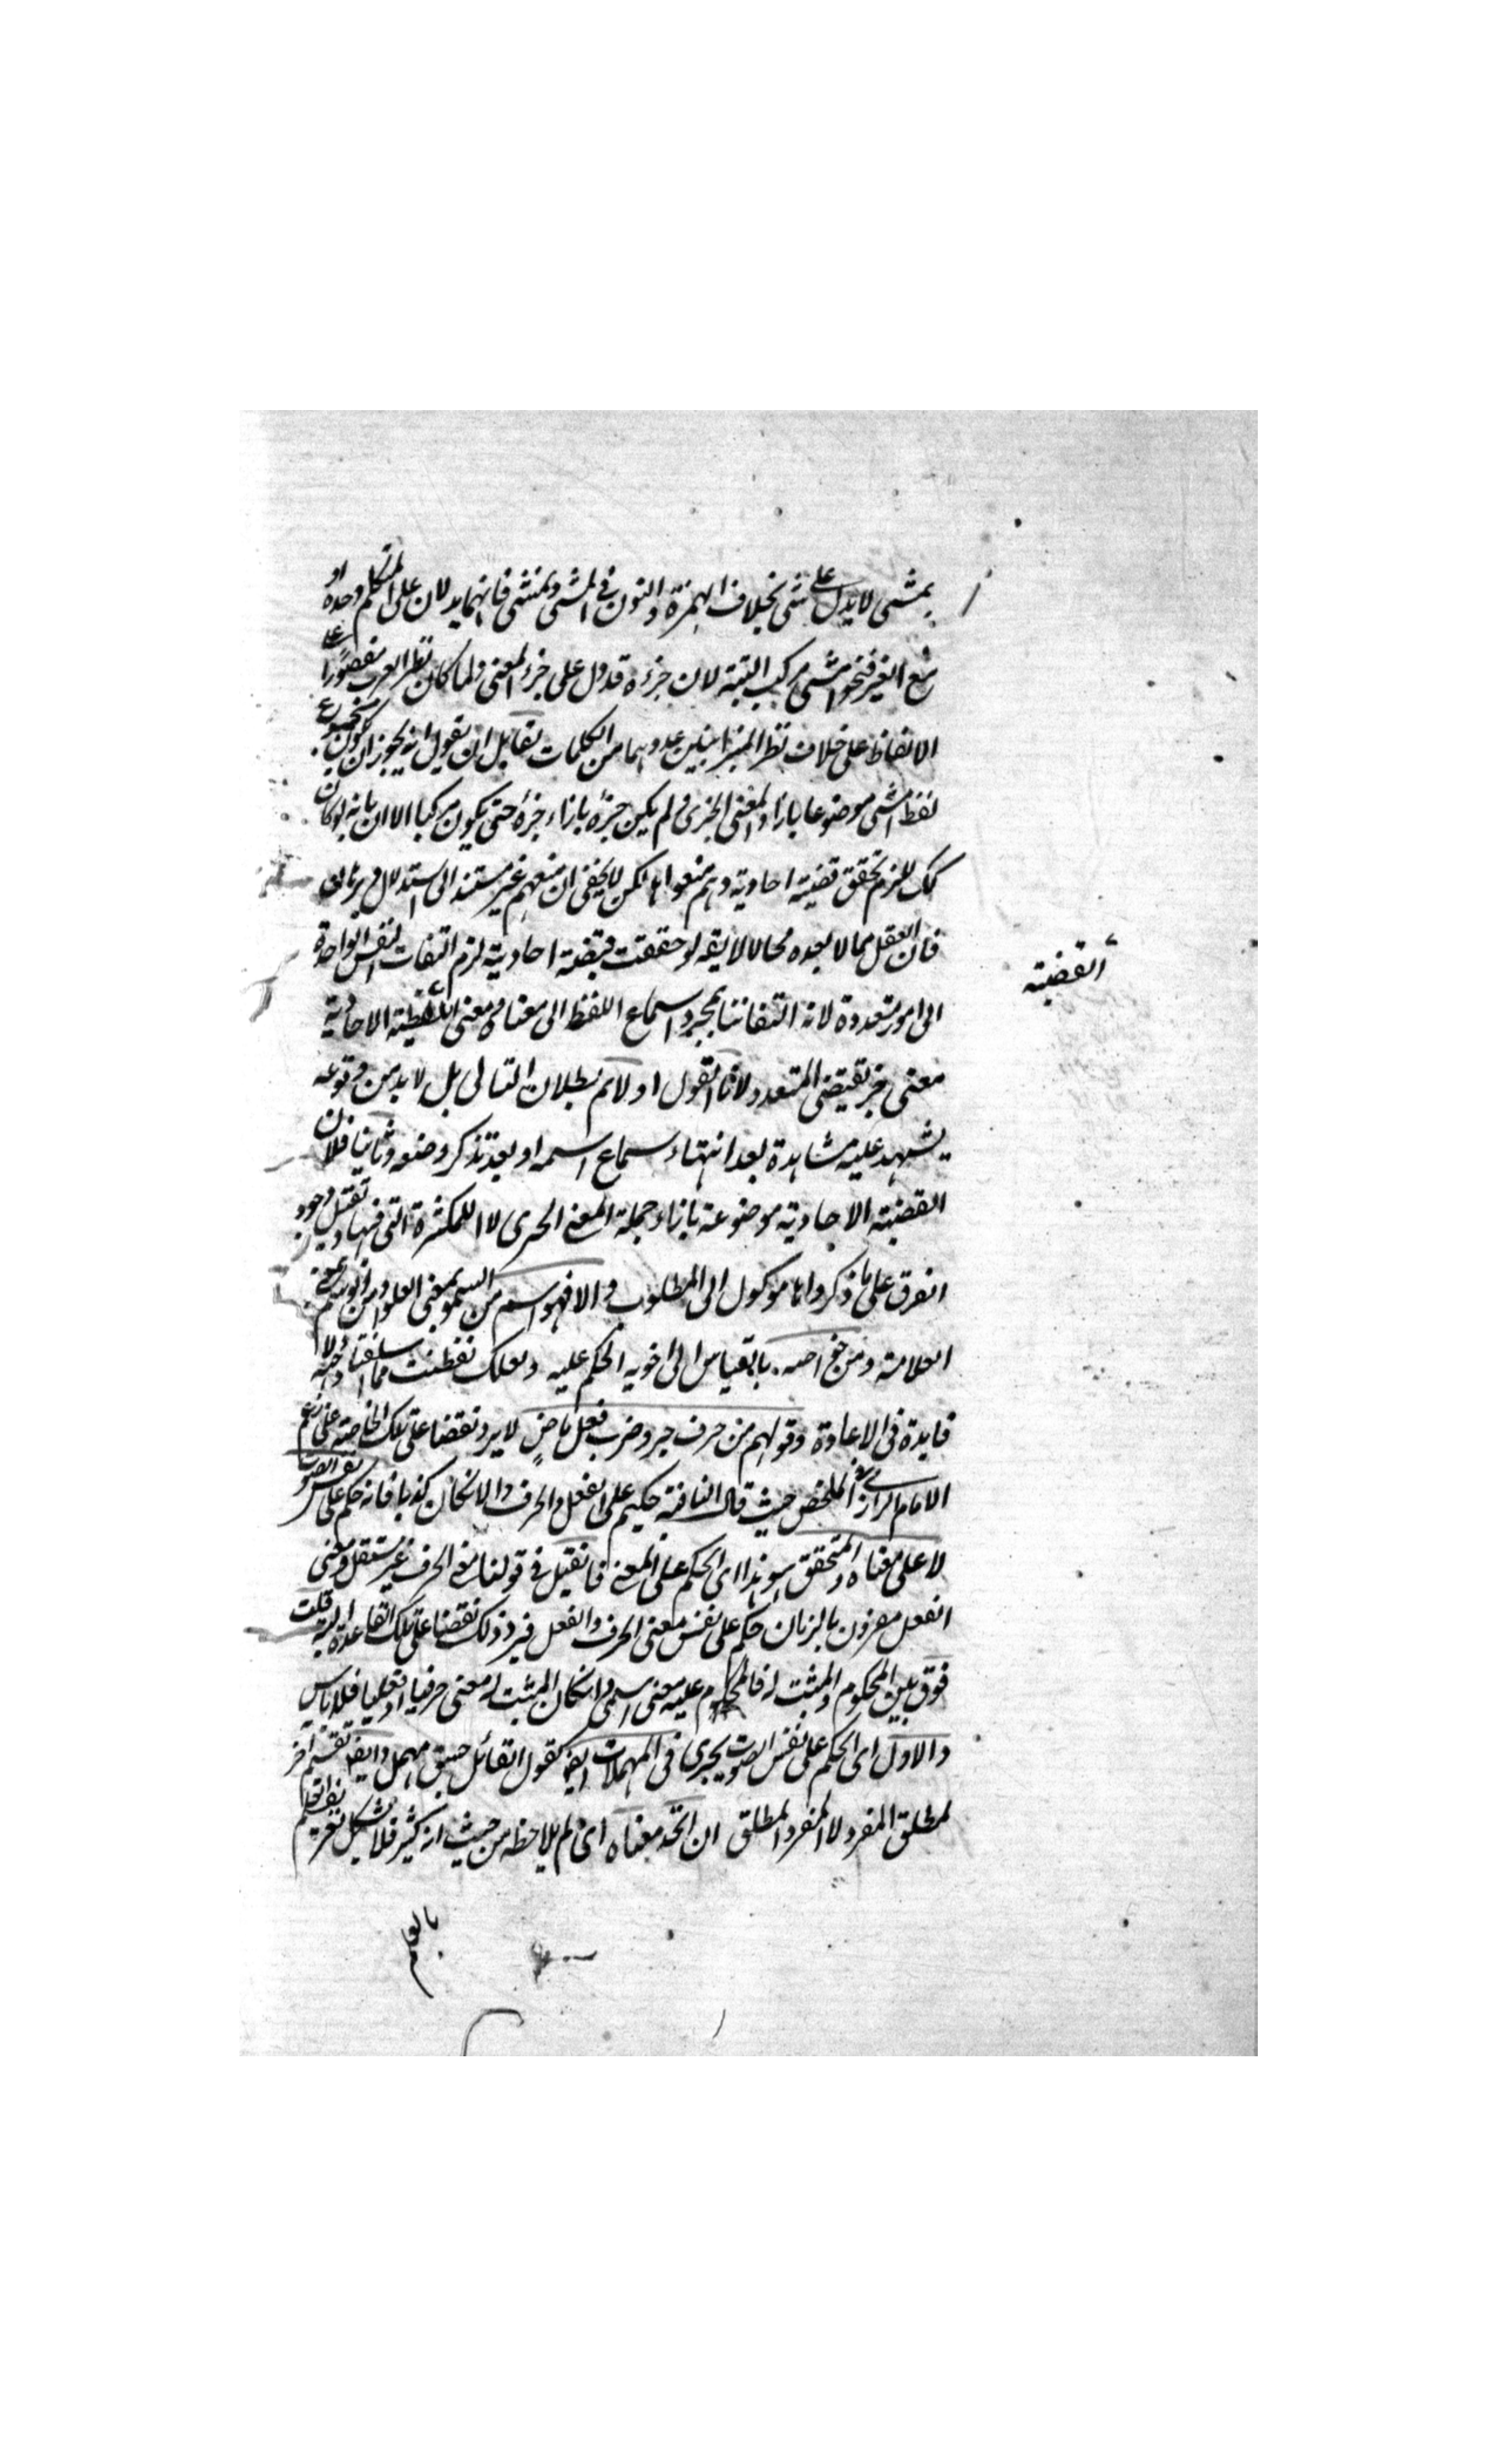 يمشي لا يدل على شي بخلاف الهمزة والنون في امشي ونمشي فانهما يدلان على المتكلم وحده او
مع الغير فنحو امشي مركب البتة لان جزءه قد دل على جزء المعنى ولما كان نظر العرب مقصورا على
الالفاظ على خلاف نظر الميزانيين عدوهما من الكلمات لقائل ان يقول انه يجوز ان يكون
لفظ امشي موضوعا بازاء المعنى الجزئي ولم يكن جزءه بازاء جزءه حتى يكون مركبا الا ان يا به لو كان
كك للزم تحقق قضية احادية وهم منعوا ها لكن لا يخفى ان منعهم غير مستند الى استدلال برهاني
فان العقل مما لا يعده محالا لا يقه لو حققت قضية احادية لزم التفات النفس الواحدة
القضية
الى امور متعددة لانه التفاتنا بمجرد استماع اللفظ الى معناه ومعنى القضية الاحادية
معنى خبر يقتضي المتعدد لانا نقول اولا نم بطلان التالي بل لا بد من وقوعه
يشهد عليه مشاهدة بعد انتهاء سماع اسمه او بعد تذكر وضعه وثانيا فلان
القضية الاحادية موضوعة بازاء جملة المعنى الحرى لا للكثرة التي فيها
الفرق على ما ذكروا ها موكول الى المطلوب والا فهو اسم من السمو بمعنى العلو
العلامة ومن خواصه بالقياس الى اخويه الحكم عليه ولعلك تفطنت مما اسلفنا وجهه لا
فايدة في الاعادة وقولهم من حرف جر وضرب فعل ماض لا يرد نقضا على تلك الخاصة على زعم
الامام الرازي في الملخص حيث قال النافية حكيم على الفعل والحرف والا لكان كذبا فانه حكم على نفس الصوت
لا على معناه والمتحقق هو هذا اي الحكم على المعنى فانقيل في قولنا معنى الحرف غير مستقل ومعنى
الفعل مقرون بالزمان حكم على نفس معنى الحرف والفعل فيرد ذلك نقضا على تلك القاعدة قلت
فرق بين المحكوم والمثبت له فالمحكوم عليه معنى اسمي وانكان المثبت له معنى حرفيا او فعليا فلا باس
والاول اي الحكم على نفس الصوت يجري في المهملات ايض كقول القائل جسق مهمل وايض تقسيم اخر
لمطلق المفرد لا المفرد المطلق ان اتحد معناه اي لم يلاحظه من حيث انه كثير فلا يشكل تعريف العلم
بالعلم